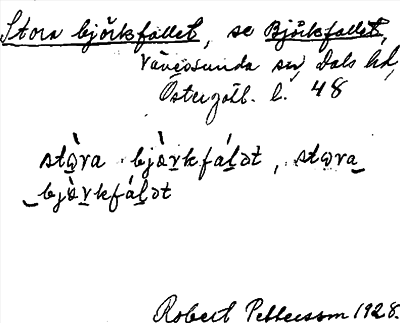 Stora björkfallet, se Björkfallet,
Väversunda sn, Dals hd,
Östergötl. l. 48
stὼra bjàrkfáḷət, stωra
bjàrkfáḷət
Robert Pettersson 1928.